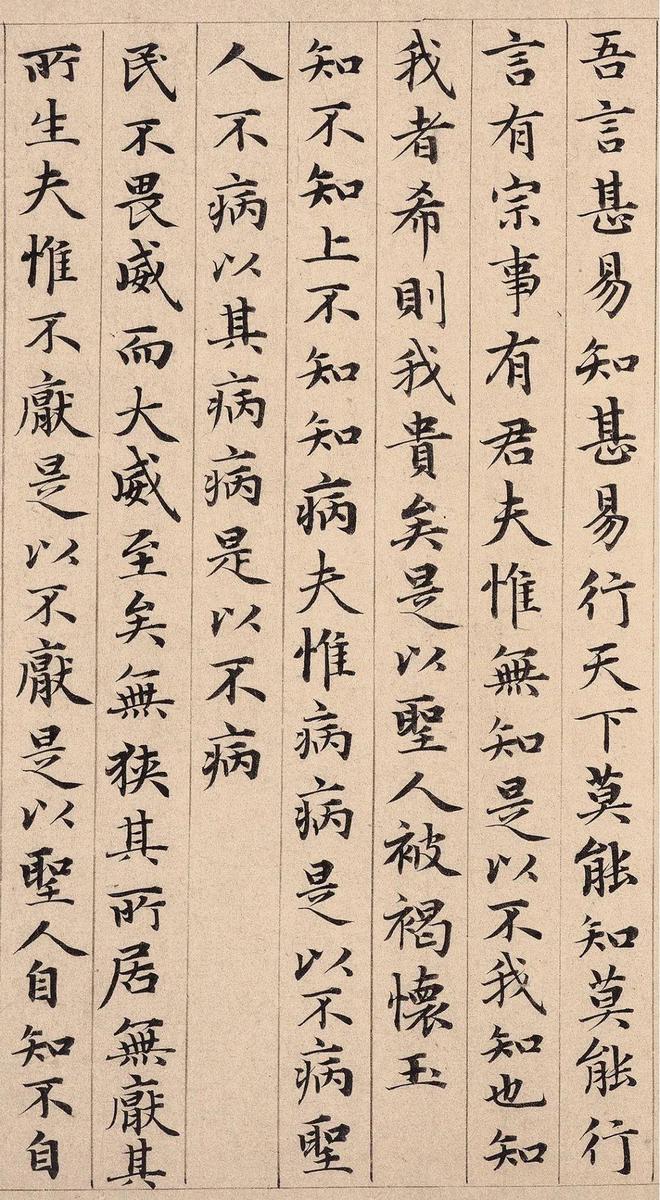 吾言甚易知甚易行天下莫能知莫能行
言有宗事有君夫惟無知是以不我知也知
我者希則我貴矣是以聖人被褐懷玉
知不知上不知知病夫惟病病是以不病聖
人不病以其病病是以不病
民不畏威而大威至矣無狹其所居無厭其
所生夫惟不厭是以不厭是以聖人自知不自